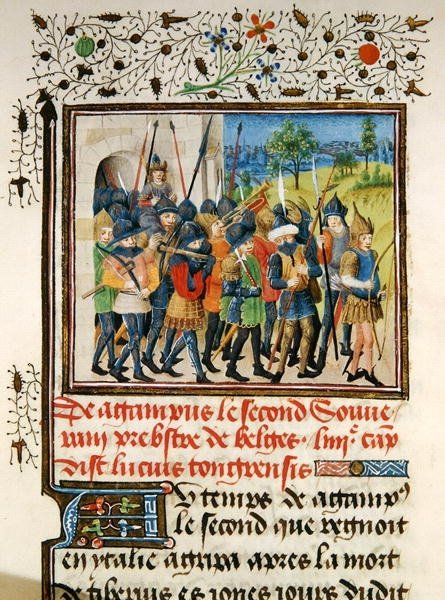 De agampus le second Souve
rain prebstre de belges. iiii.e cap
dist lucius tongrensis
Au temps de agamp9
le second que regnoit
en ytalie agripa apres la mort
de tiberius es iones iours dudit